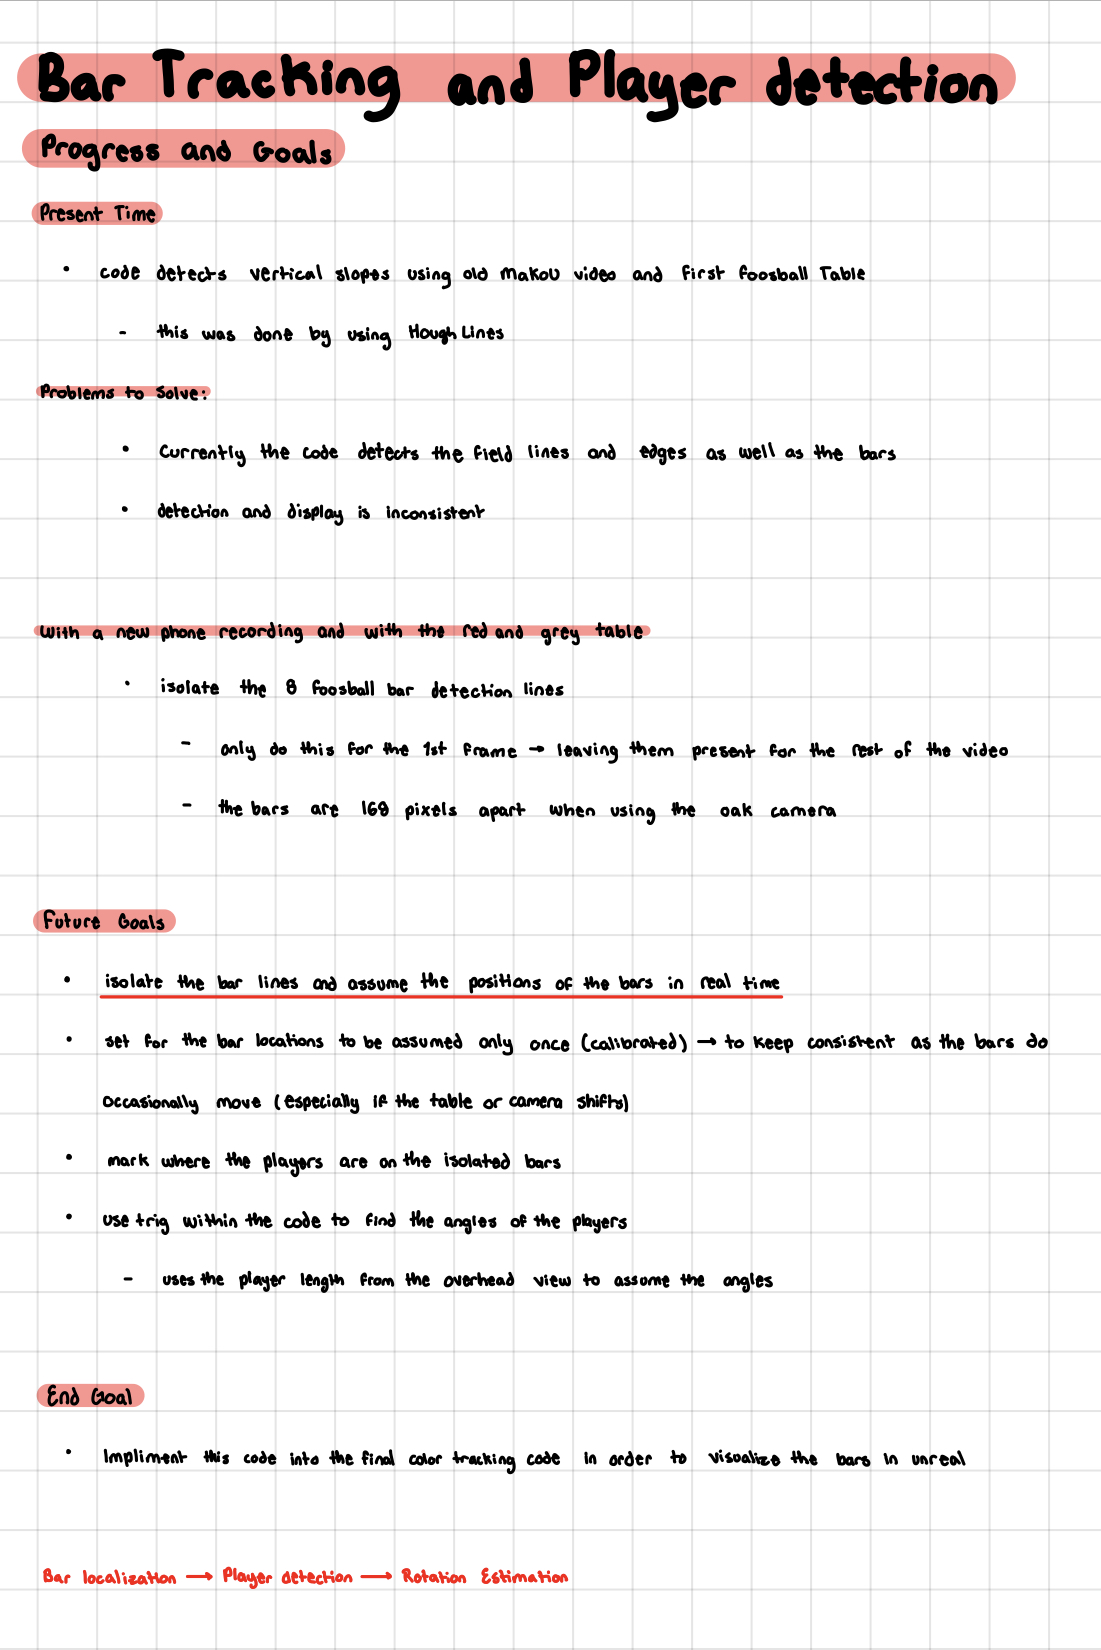 Bar Tracking and Player detection
Progress and Goals
Present Time
• code detects vertical slopes using old Makou video and first foosball Table
- this was done by using HoughLines
Problems to Solve:
• Currently the code detects the field lines and edges as well as the bars
• detection and display is inconsistent
with a new phone recording and with the red and grey table
• isolate the 8 foosball bar detection lines
- only do this for the 1st frame → leaving them present for the rest of the video
- the bars are 168 pixels apart when using the oak camera
Future Goals
• isolate the bar lines and assume the positions of the bars in real time
• set for the bar locations to be assumed only once (calibrated) → to keep consistent as the bars do
occasionally move (especially if the table or camera shifts)
• mark where the players are on the isolated bars
• use trig within the code to find the angles of the players
- uses the player length from the overhead view to assume the angles
End Goal
• Impliment this code into the final color tracking code in order to visualize the bars in unreal
Bar localization → Player detection → Rotation Estimation